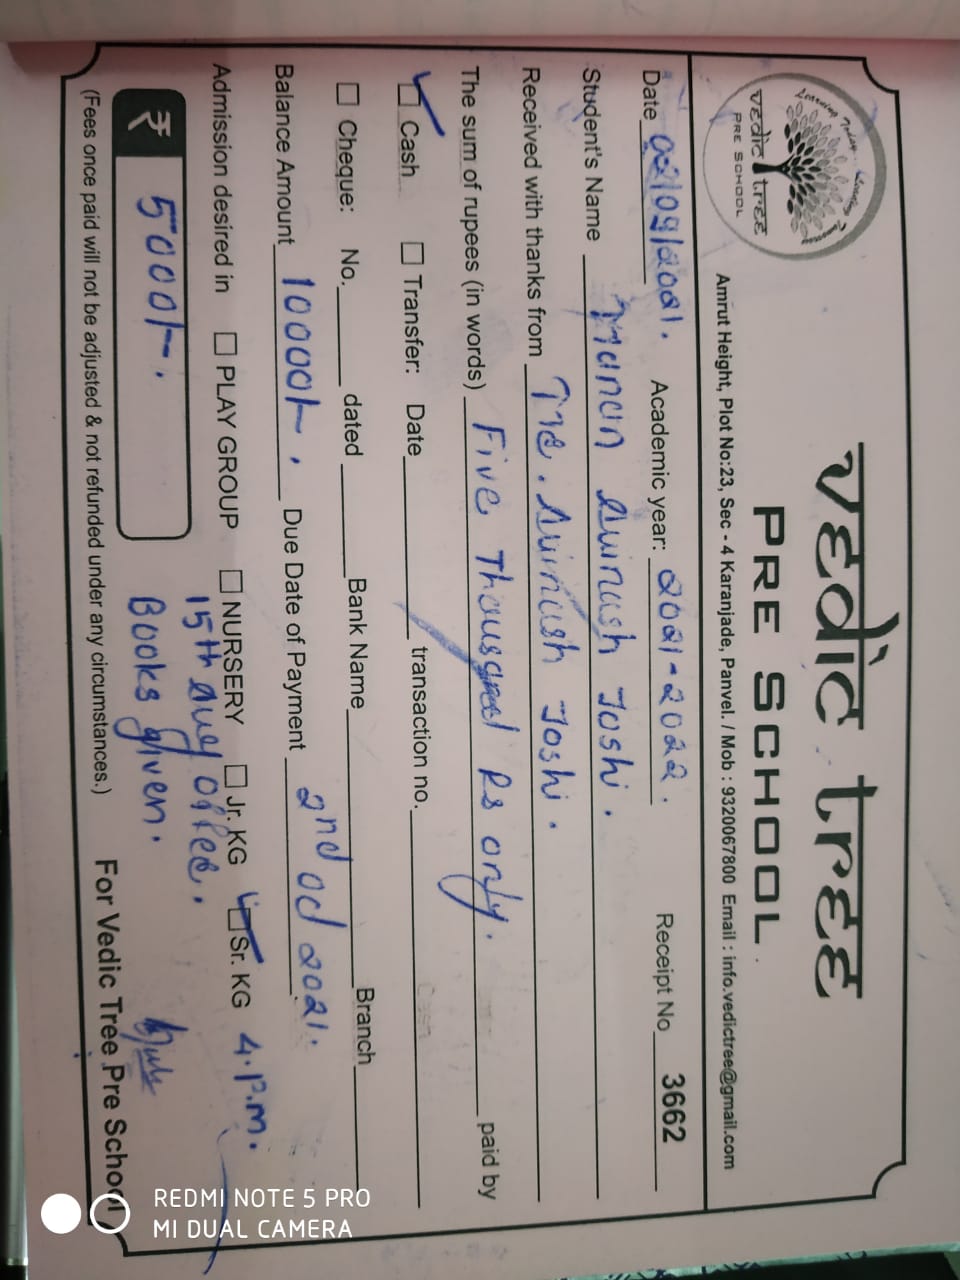 vedic tree
PRE SCHOOL
vedic tree
PRE SCHOOL
Amrut Height, Plot No:23, Sec - 4 Karanjade, Panvel. / Mob : 9320067800 Email : info.vedictree@gmail.com
Date 02/09/2021. Academic year: 2021-2022. Receipt No 3662
Student's Name Manan Avinash Joshi.
Received with thanks from Mr. Avinash Joshi.
The sum of rupees (in words) Five Thousand Rs only. paid by
Cash Transfer: Date transaction no.
Cheque: No. dated Bank Name Branch
Balance Amount 10000/-. Due Date of Payment 2nd Oct 2021.
Admission desired in PLAY GROUP NURSERY Jr. KG Sr. KG 4.P.M.
15th Aug offer.
₹ 5000/-. Books given.
(Fees once paid will not be adjusted & not refunded under any circumstances.) For Vedic Tree Pre School
REDMI NOTE 5 PRO
MI DUAL CAMERA